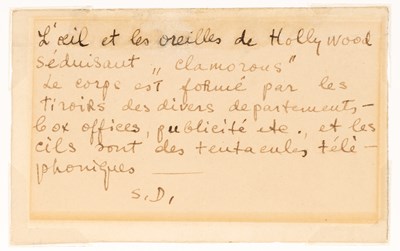 L'œil et les oreilles de Hollywood
séduisant „ clamorous"
Le corps est formé par les
tiroirs des divers departements-
box offices, publicité etc., et les
cils sont des tentacules télé-
phoniques —
S.D.